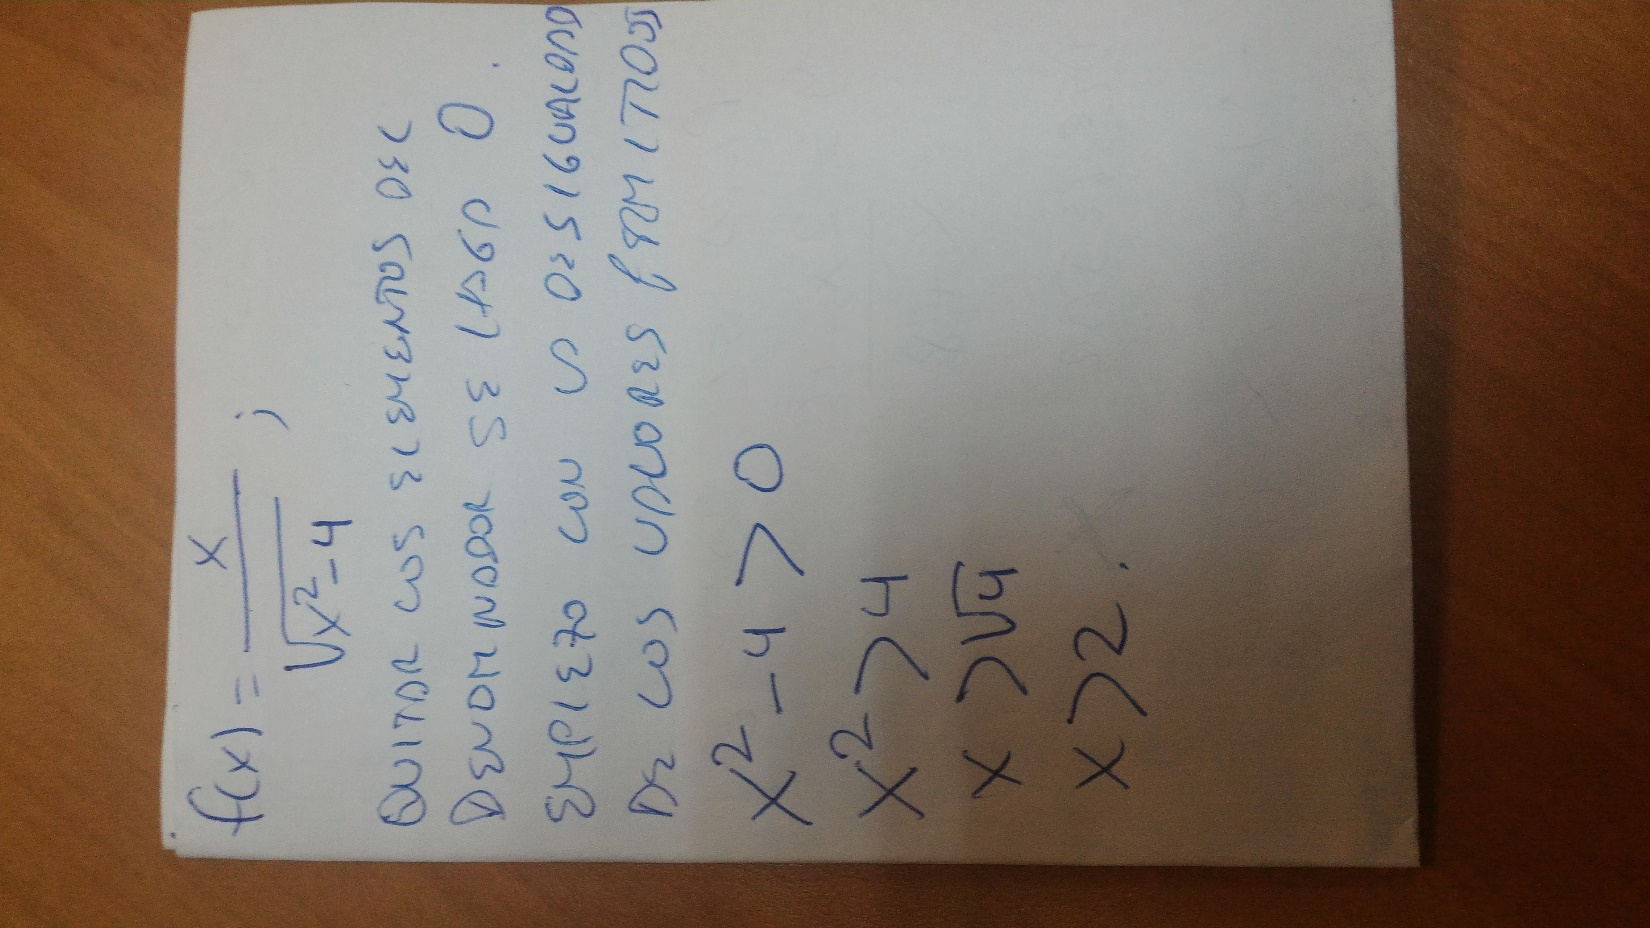 f(x) = x / √x²-4 ;
QUITAR LOS ELEMENTOS DEL
DENOMINADOR SE HAGA 0.
EMPIEZO CON LA DESIGUALDAD
DE LOS VALORES PERMITIDOS
x² - 4 > 0
x² > 4
x > √4
x > 2.